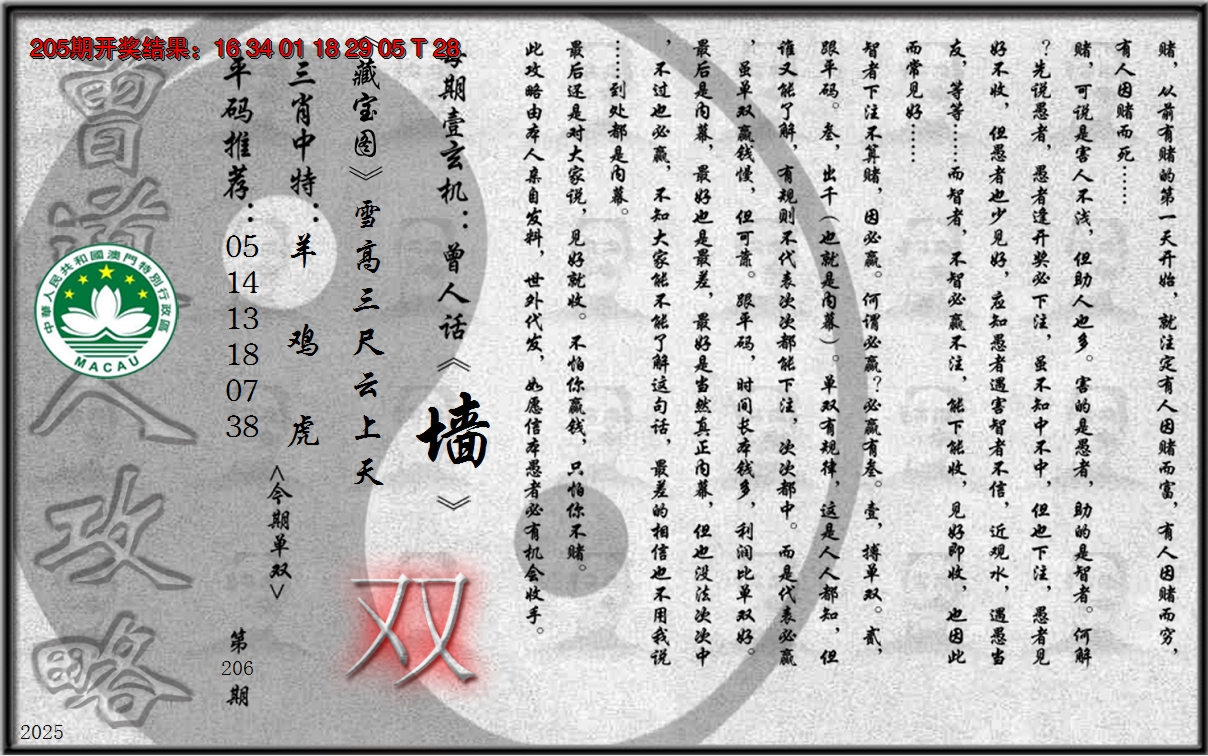 205期开奖结果：16 34 01 18 29 05 T 28
赌，从前有赌的第一天开始，就注定有人因赌而富，有人因赌而穷，
有人因赌而死……
赌，可说是害人不浅，但助人也多。害的是愚者，助的是智者。何解
？先说愚者，愚者逢开奖必下注，虽不知中不中，但也下注，愚者见
好不收，但愚者也少见好，应知愚者遇害智者不信，近观水，遇愚当
友，等等……而智者，不智必赢不注，能下能收，见好即收，也因此
而常见好……
智者下注不算赌，因必赢。何谓必赢？必赢有叁。壹，搏单双。贰，
跟平码。叁，出千（也就是内幕）。单双有规律，这是人人都知，但
谁又能了解，有规则不代表次次都能下注，次次都中。而是代表必赢
，虽单双赢钱慢，但可靠。跟平码，时间长本钱多，利润比单双好。
最后是内幕，最好也是最差，最好是当然真正内幕，但也没法次次中
，不过也必赢，不知大家能不能了解这句话，最差的相信也不用我说
……到处都是内幕。
最后还是对大家说，见好就收。不怕你赢钱，只怕你不赌。
此攻略由本人亲自发料，世外代发，如愿信本愚者必有机会收手。
每期壹玄机：曾人话《墙》
《藏宝图》雪高三尺云上天
双
三肖中特：羊 鸡 虎
<今期单双>
平码推荐：05 14 13 18 07 38
第206期
曾道人攻略
中華人民共和國澳門特別行政區
MACAU
2025